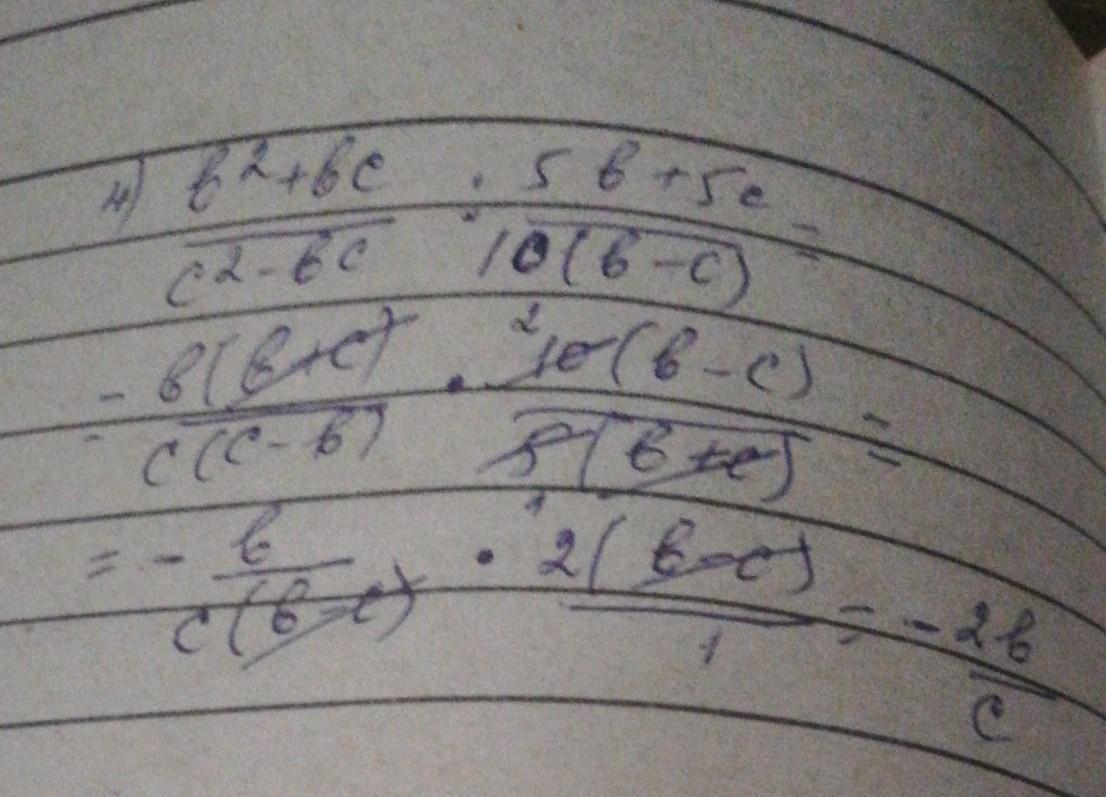 4) (b²+bc)/(c²-bc) : (5b+5c)/(10(b-c)) =
= b(b+c)/(c(c-b)) · ²10(b-c)/(5(b+c)) 1 =
= - b/(c(b-c)) · 2(b-c)/1 = - 2b/c